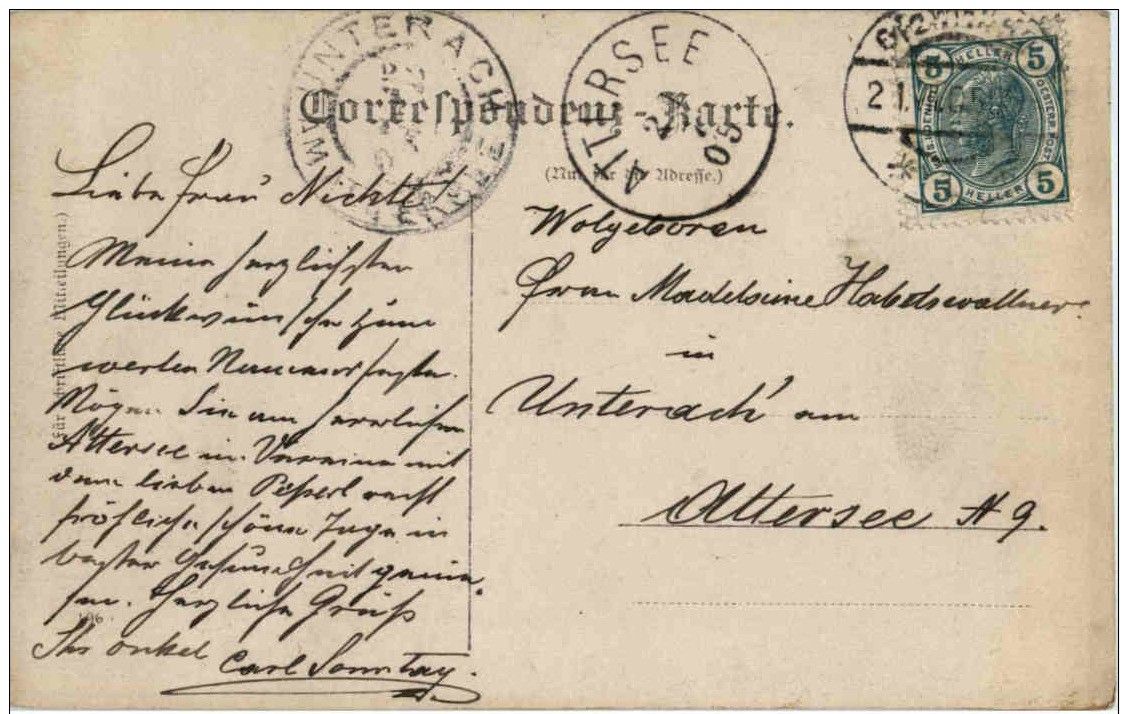 Correspondenz-Karte.
(Nur für die Adresse.)
UNTERACH
ATTERSEE
ATTERSEE
05
21.
5 HELLER 5
5 HELLER 5
Für schriftliche Mitteilungen.)
Liebe Frau Nichte!
Meine herzlichsten
Glückwünsche zum
werten Namensfeste.
Mögen Sie am herrlichen
Attersee im Vereine mit
dem lieben Peperl recht
fröhliche schöne Tage in
bester Gesundheit genie-
sen. Herzliche Grüße
Ihr onkel Carl Sonntag.
Wolgeboren
Frau Madeleine Habelswallner
in
Unterach am
Attersee No 9.